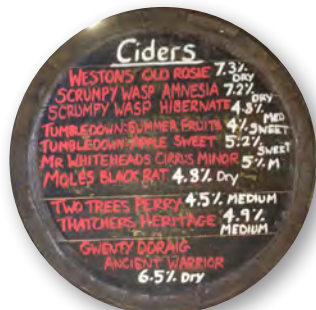 Ciders
WESTONS OLD ROSIE 7.3% DRY
SCRUMPY WASP AMNESIA 7.2% DRY
SCRUMPY WASP HIBERNATE 4.8% MED
TUMBLEDOWN SUMMER FRUITS 4% SWEET
TUMBLEDOWN APPLE SWEET 5.2% SWEET
MR WHITEHEADS CIRRUS MINOR 5% M
MOLES BLACK RAT 4.8% Dry
TWO TREES PERRY 4.5% MEDIUM
THATCHERS HERITAGE 4.9%
MEDIUM
GWENTY DDRAIG
ANCIENT WARRIOR
6.5% Dry